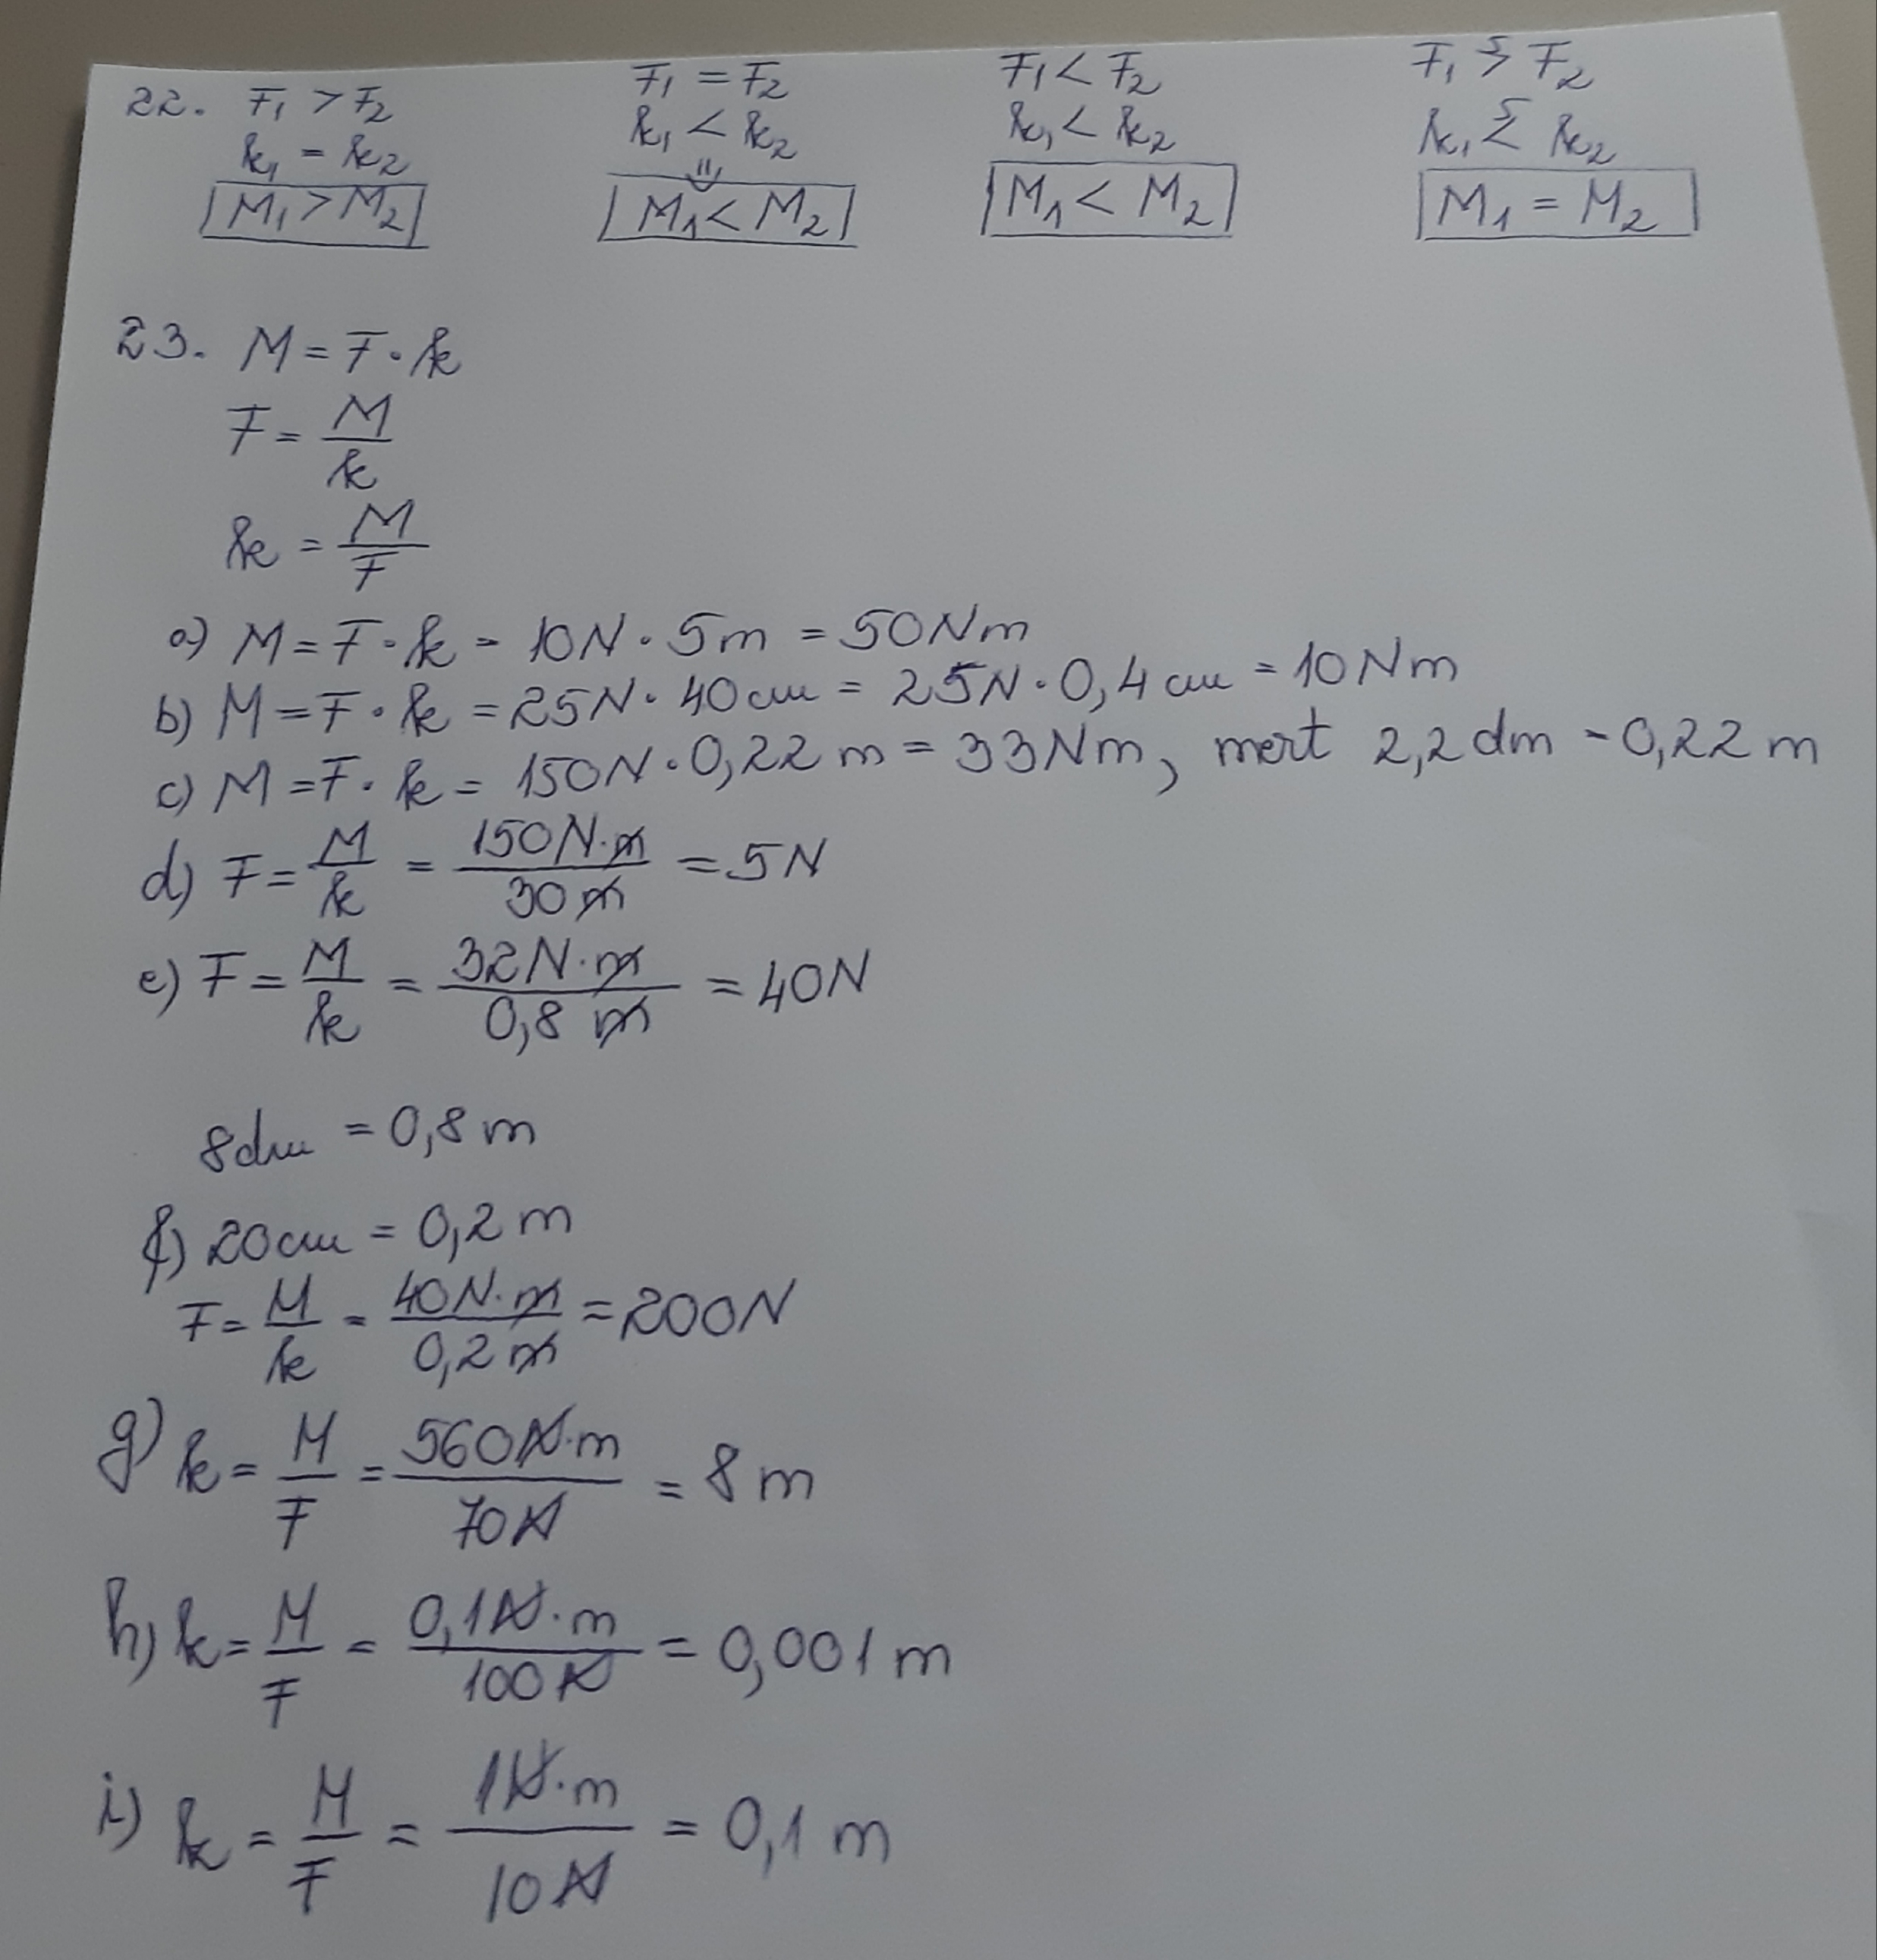 22. F₁ > F₂ F₁ = F₂ F₁ < F₂ F₁ > F₂
k₁ = k₂ k₁ < k₂ k₁ < k₂ k₁ < k₂
M₁ > M₂ M₁ < M₂ M₁ < M₂ M₁ = M₂
23. M = F · k
F = M/k
k = M/F
a) M = F · k = 10N · 5m = 50Nm
b) M = F · k = 25N · 40cm = 25N · 0,4cm = 10Nm
c) M = F · k = 150N · 0,22m = 33Nm, mert 2,2dm = 0,22m
d) F = M/k = 150N·m/30m = 5N
e) F = M/k = 32N·m/0,8m = 40N
8dm = 0,8m
f) 20cm = 0,2m
F = M/k = 40N·m/0,2m = 200N
g) k = M/F = 560N·m/70N = 8m
h) k = M/F = 0,1N·m/100N = 0,001m
i) k = M/F = 1N·m/10N = 0,1m